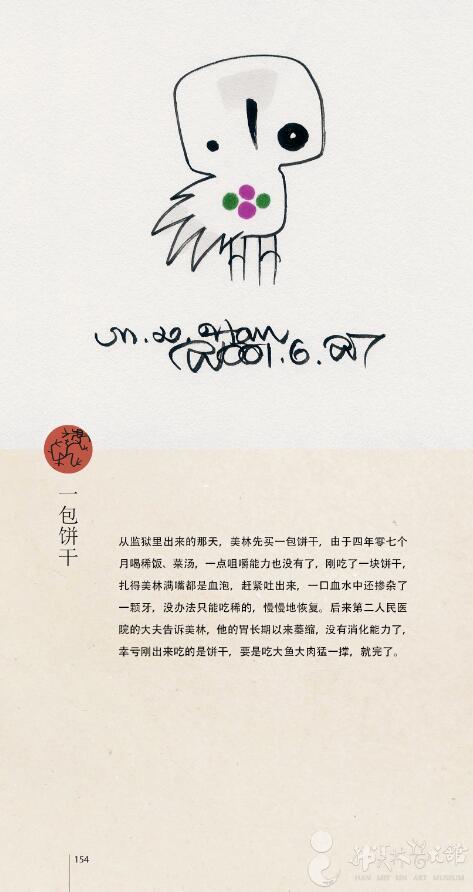 2001.6.27
一包饼干
从监狱里出来的那天，美林先买一包饼干，由于四年零七个
月喝稀饭、菜汤，一点咀嚼能力也没有了，刚吃了一块饼干，
扎得美林满嘴都是血泡，赶紧吐出来，一口血水中还掺杂了
一颗牙，没办法只能吃稀的，慢慢地恢复。后来第二人民医
院的大夫告诉美林，他的胃长期以来萎缩，没有消化能力了，
幸亏刚出来吃的是饼干，要是吃大鱼大肉猛一撑，就完了。
154
韩美林艺术馆
HAN MEI LIN ART MUSEUM